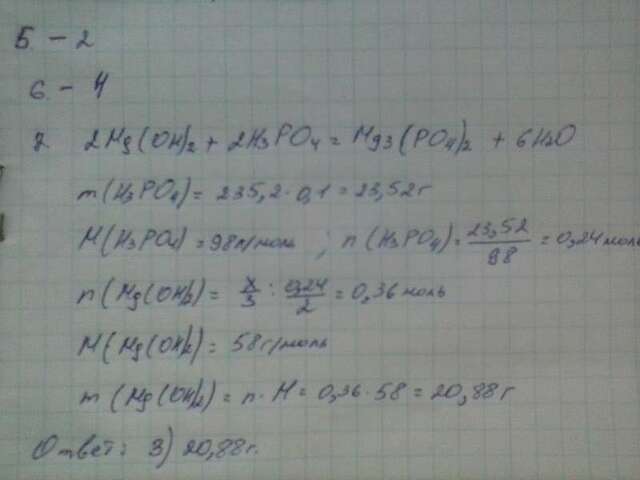 5 - 2
6 - 4
7. 2Mg(OH)2 + 2H3PO4 = Mg3(PO4)2 + 6H2O
m(H3PO4) = 235,2 · 0,1 = 23,52 г
M(H3PO4) = 98 г/моль ; n(H3PO4) = 23,52/98 = 0,24 моль
n(Mg(OH)2) = x/3 : 0,24/2 = 0,36 моль
M(Mg(OH)2) = 58 г/моль
m(Mg(OH)2) = n · M = 0,36 · 58 = 20,88 г
Ответ: 3) 20,88 г.